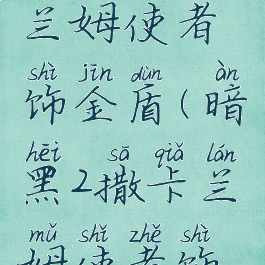 兰姆使者
shì jīn dùn àn
饰金盾(暗
hēi sā qiǎ lán
黑2撒卡兰
mǔ shǐ zhě shì
姆使者饰